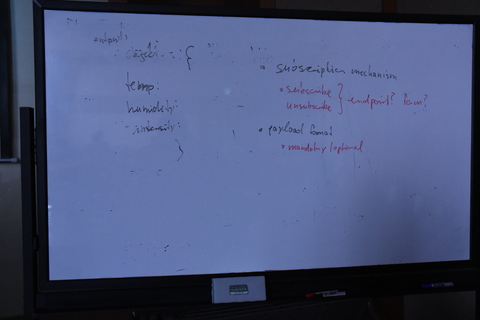 {
temp:
humidity:
intensity:
}
• subscription mechanism
• subscribe
unsubscribe } endpoint?
• payload format
• mandatory/optional